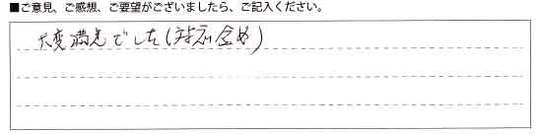 ■ご意見、ご感想、ご要望がございましたら、ご記入ください。
大変満足でした(対応含め)